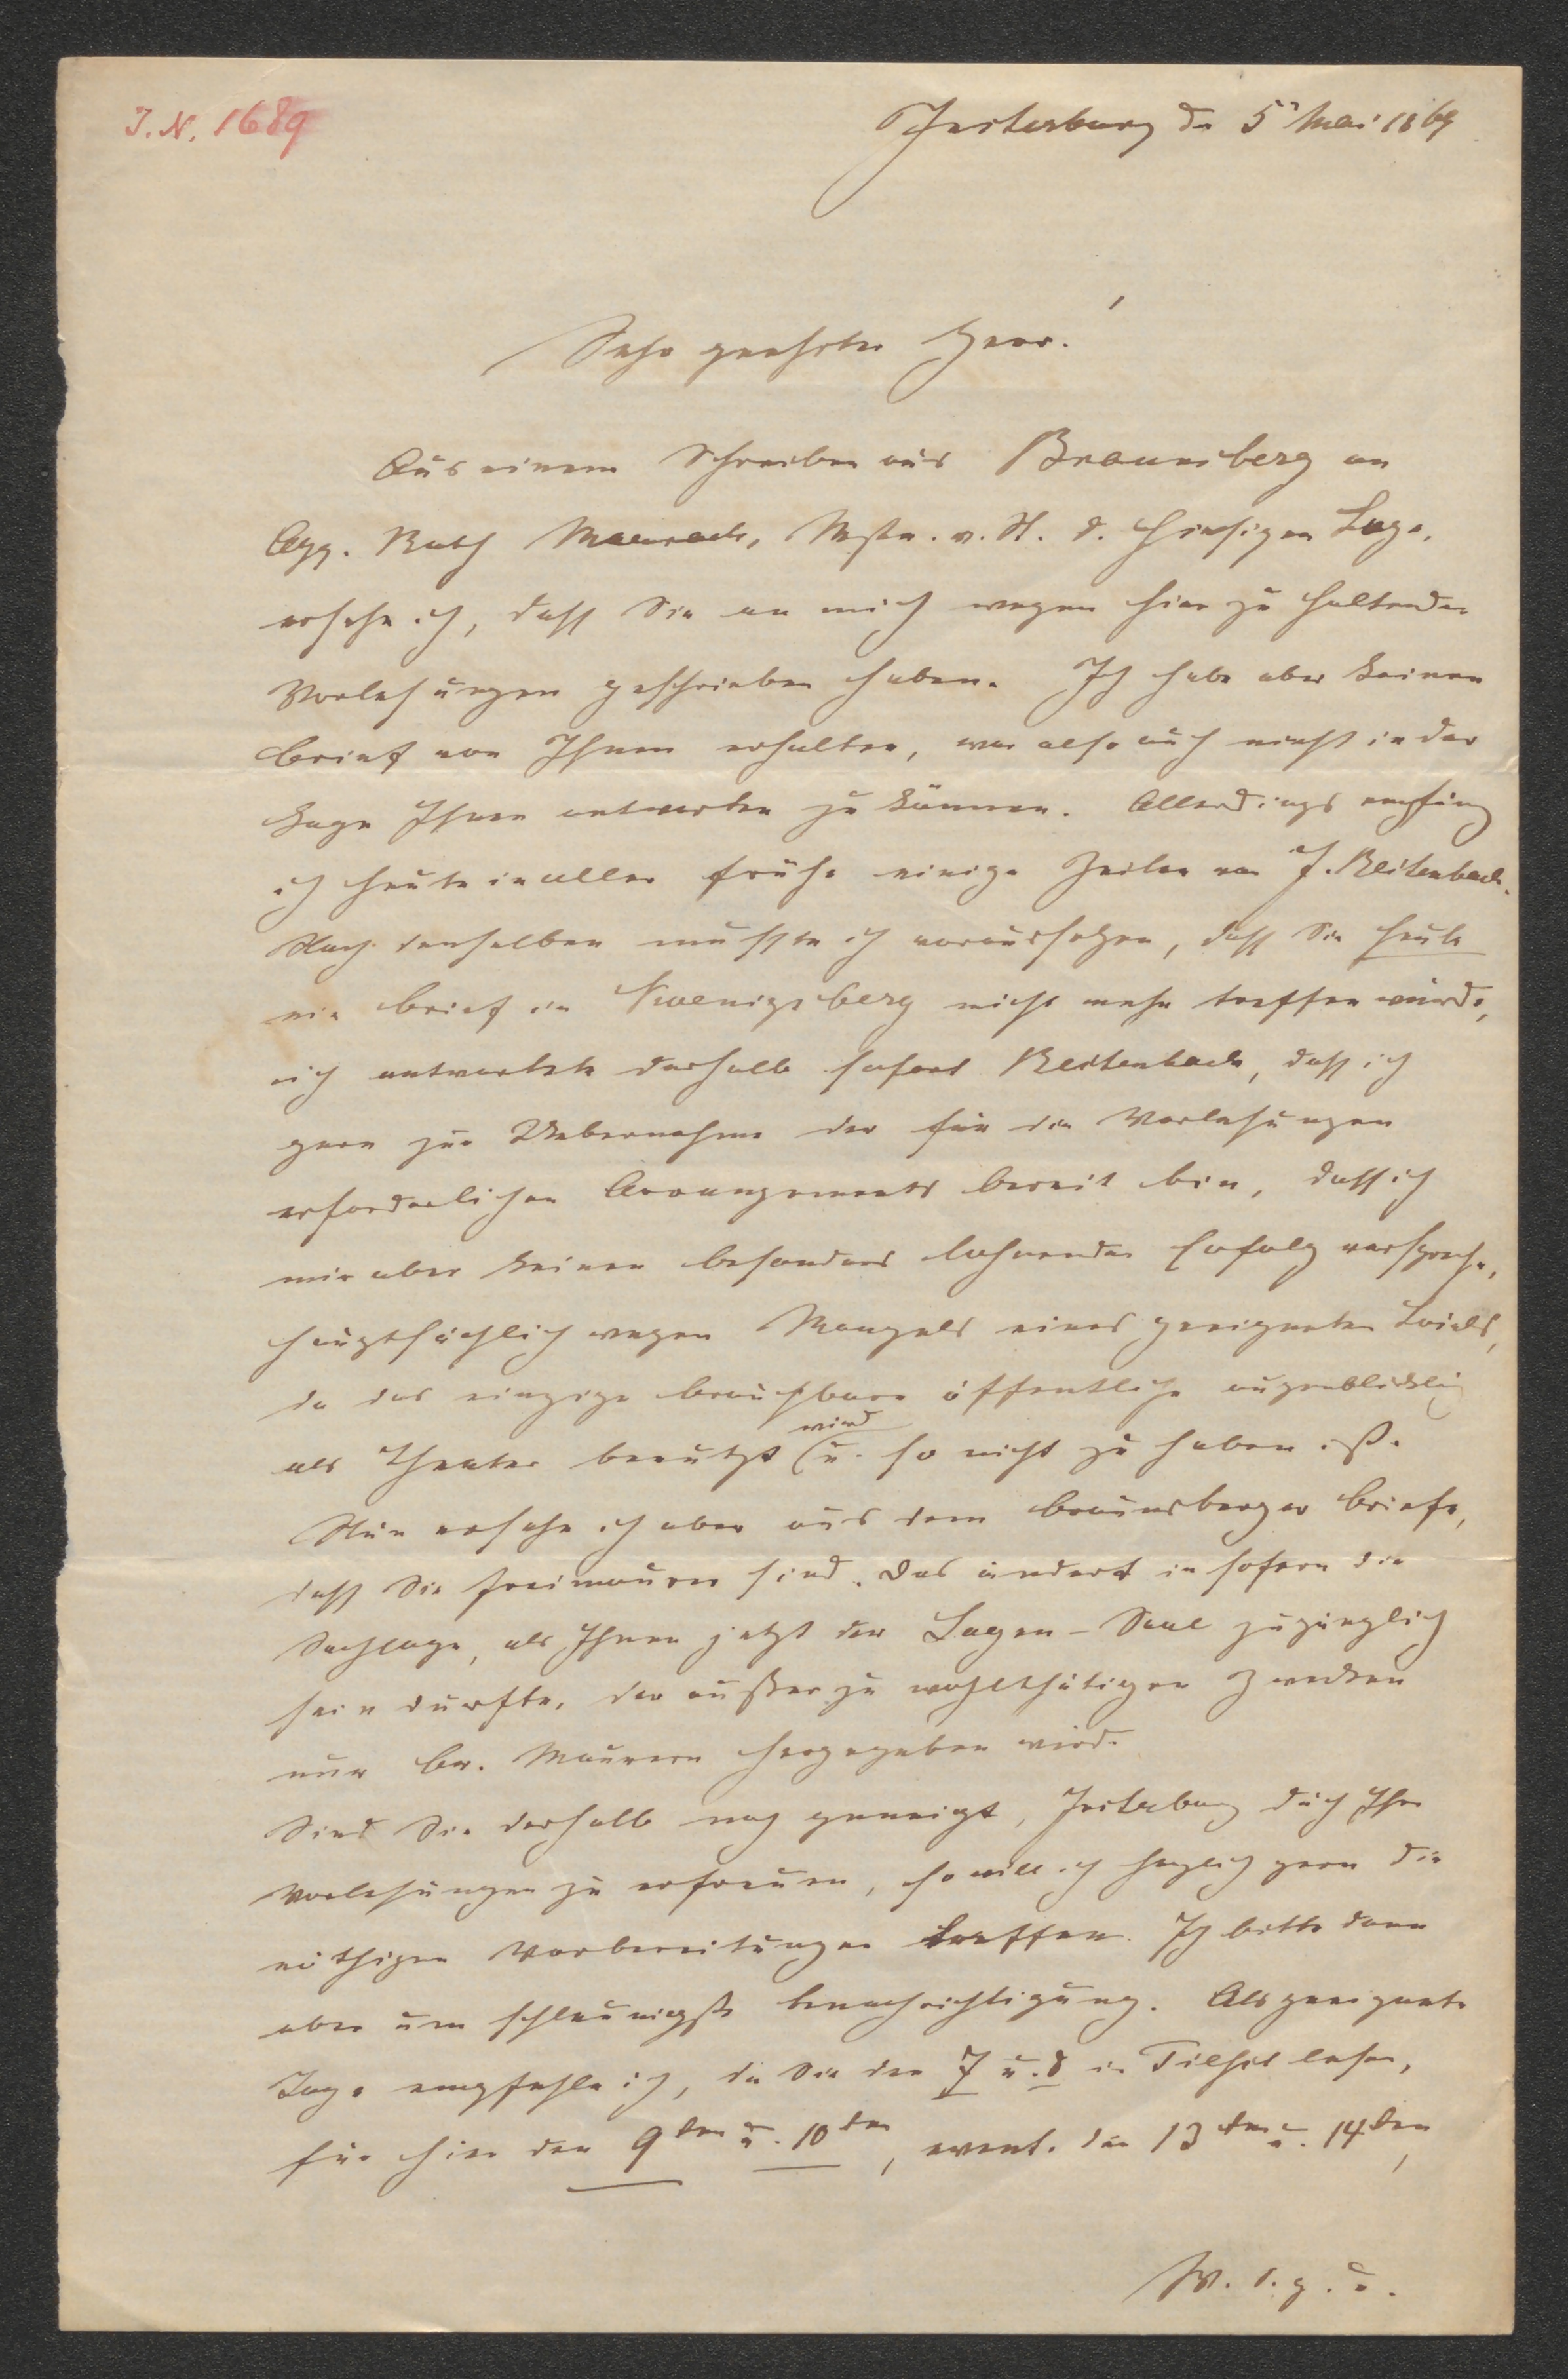 J. N. 1689
Insterburg d. 5t Mai 1869
Sehr geehrter Herr!
Aus einem Schreiben aus Braunsberg an
App. Rath Maurach, Mstr. v. St. d. hiesigen Loge,
ersehe ich, daß Sie an mich wegen hier zu haltender
Vorlesungen geschrieben haben. Ich habe aber keinen
Brief von Ihnen erhalten, war also auch nicht in der
Lage Ihnen antworten zu können. Allerdings empfing
ich heute in aller Frühe einige Zeilen von J. Reitenbach.
Nach denselben mußte ich voraussetzen, daß Sie heute
ein Brief in Koenigsberg nicht mehr treffen würde,
ich antwortete deshalb sofort Reitenbach, daß ich
gern zur Uebernahme der für die Vorlesungen
erforderlichen Arrangements bereit bin, daß ich
mir aber keinen besonders lohnenden Erfolg verspreche,
hauptsächlich wegen Mangels eines geeigneten Locals,
da das einzige brauchbare öffentliche augenblicklich
als Theater benutzt wird u. so nicht zu haben ist.
Nun ersehe ich aber aus dem Braunsberger Briefe,
daß Sie Freimaurer sind. Das ändert in sofern die
Sachlage, als Ihnen jetzt der Logen-Saal zugänglich
sein dürfte, der außer zu wohlthätigen Zwecken
nur Br. Maurern hergegeben wird.
Sind Sie deshalb noch geneigt, Insterburg durch Ihre
Vorlesungen zu erfreuen, so will ich herzlich gern die
nöthigen Vorbereitungen treffen. Ich bitte dann
aber um schleunigste Benachrichtigung. Als geeignete
Tage empfehle ich, da Sie den 7 u. 8 in Tilsit lesen,
für hier den 9ten u. 10ten, event. den 13ten u. 14ten,
W. s. g. u.